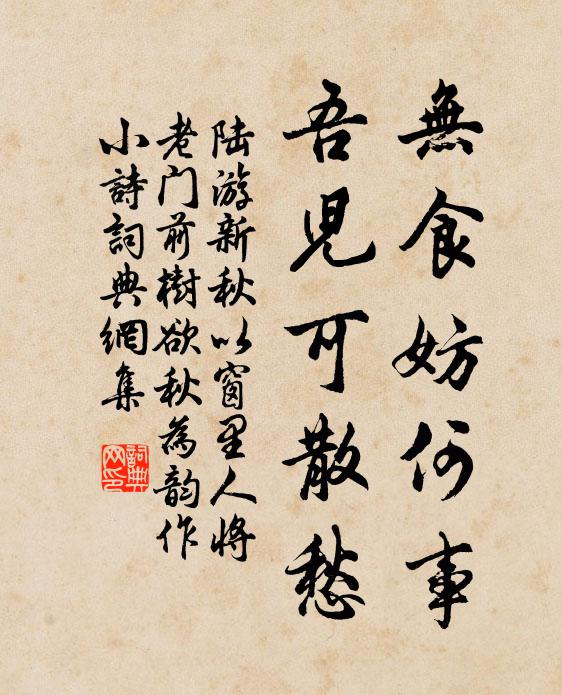 無食妨何事
吾児可散愁
陆游新秋以窗里人将
老门前樹欲秋為韵作
小詩詞典網集
詞典
网印